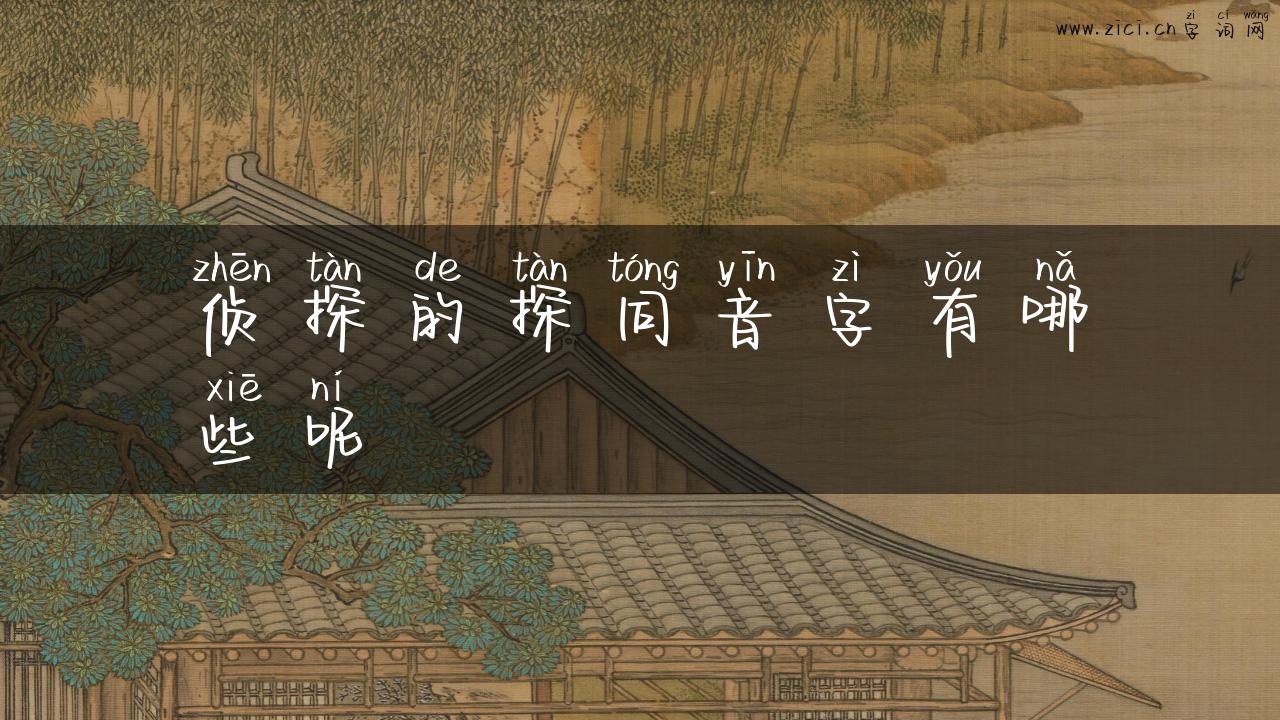 zì cí wǎng
www.zici.cn字词网
zhēn tàn de tàn tóng yīn zì yǒu nǎ
侦探的探同音字有哪
xiē ní
些呢